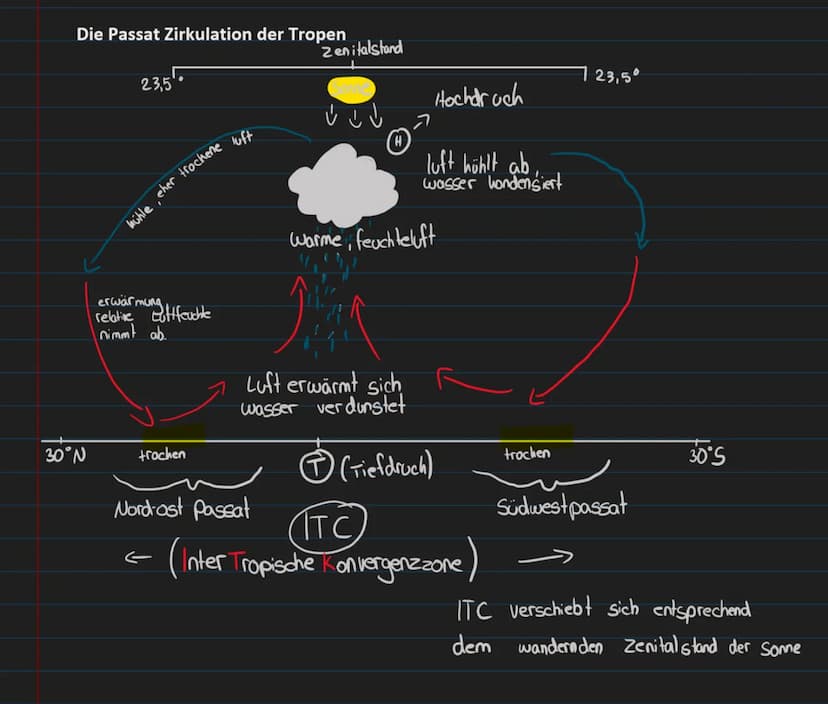 Die Passat Zirkulation der Tropen
Zenitalstand
23,5°
23,5°
Sonne
Hochdruch
H
kühle, eher trochene luft
luft kühlt ab,
wasser kondensiert
warme, feuchteluft
erwärmung
relative Luftfeuchte
nimmt ab.
Luft erwärmt sich
wasser verdunstet
30°N
trochen
T (Tiefdruch)
trochen
30°S
Nord-ost Passat
Südwestpassat
ITC
(InterTropische Konvergenzzone)
ITC verschiebt sich entsprechend
dem wandernden Zenitalstand der Sonne